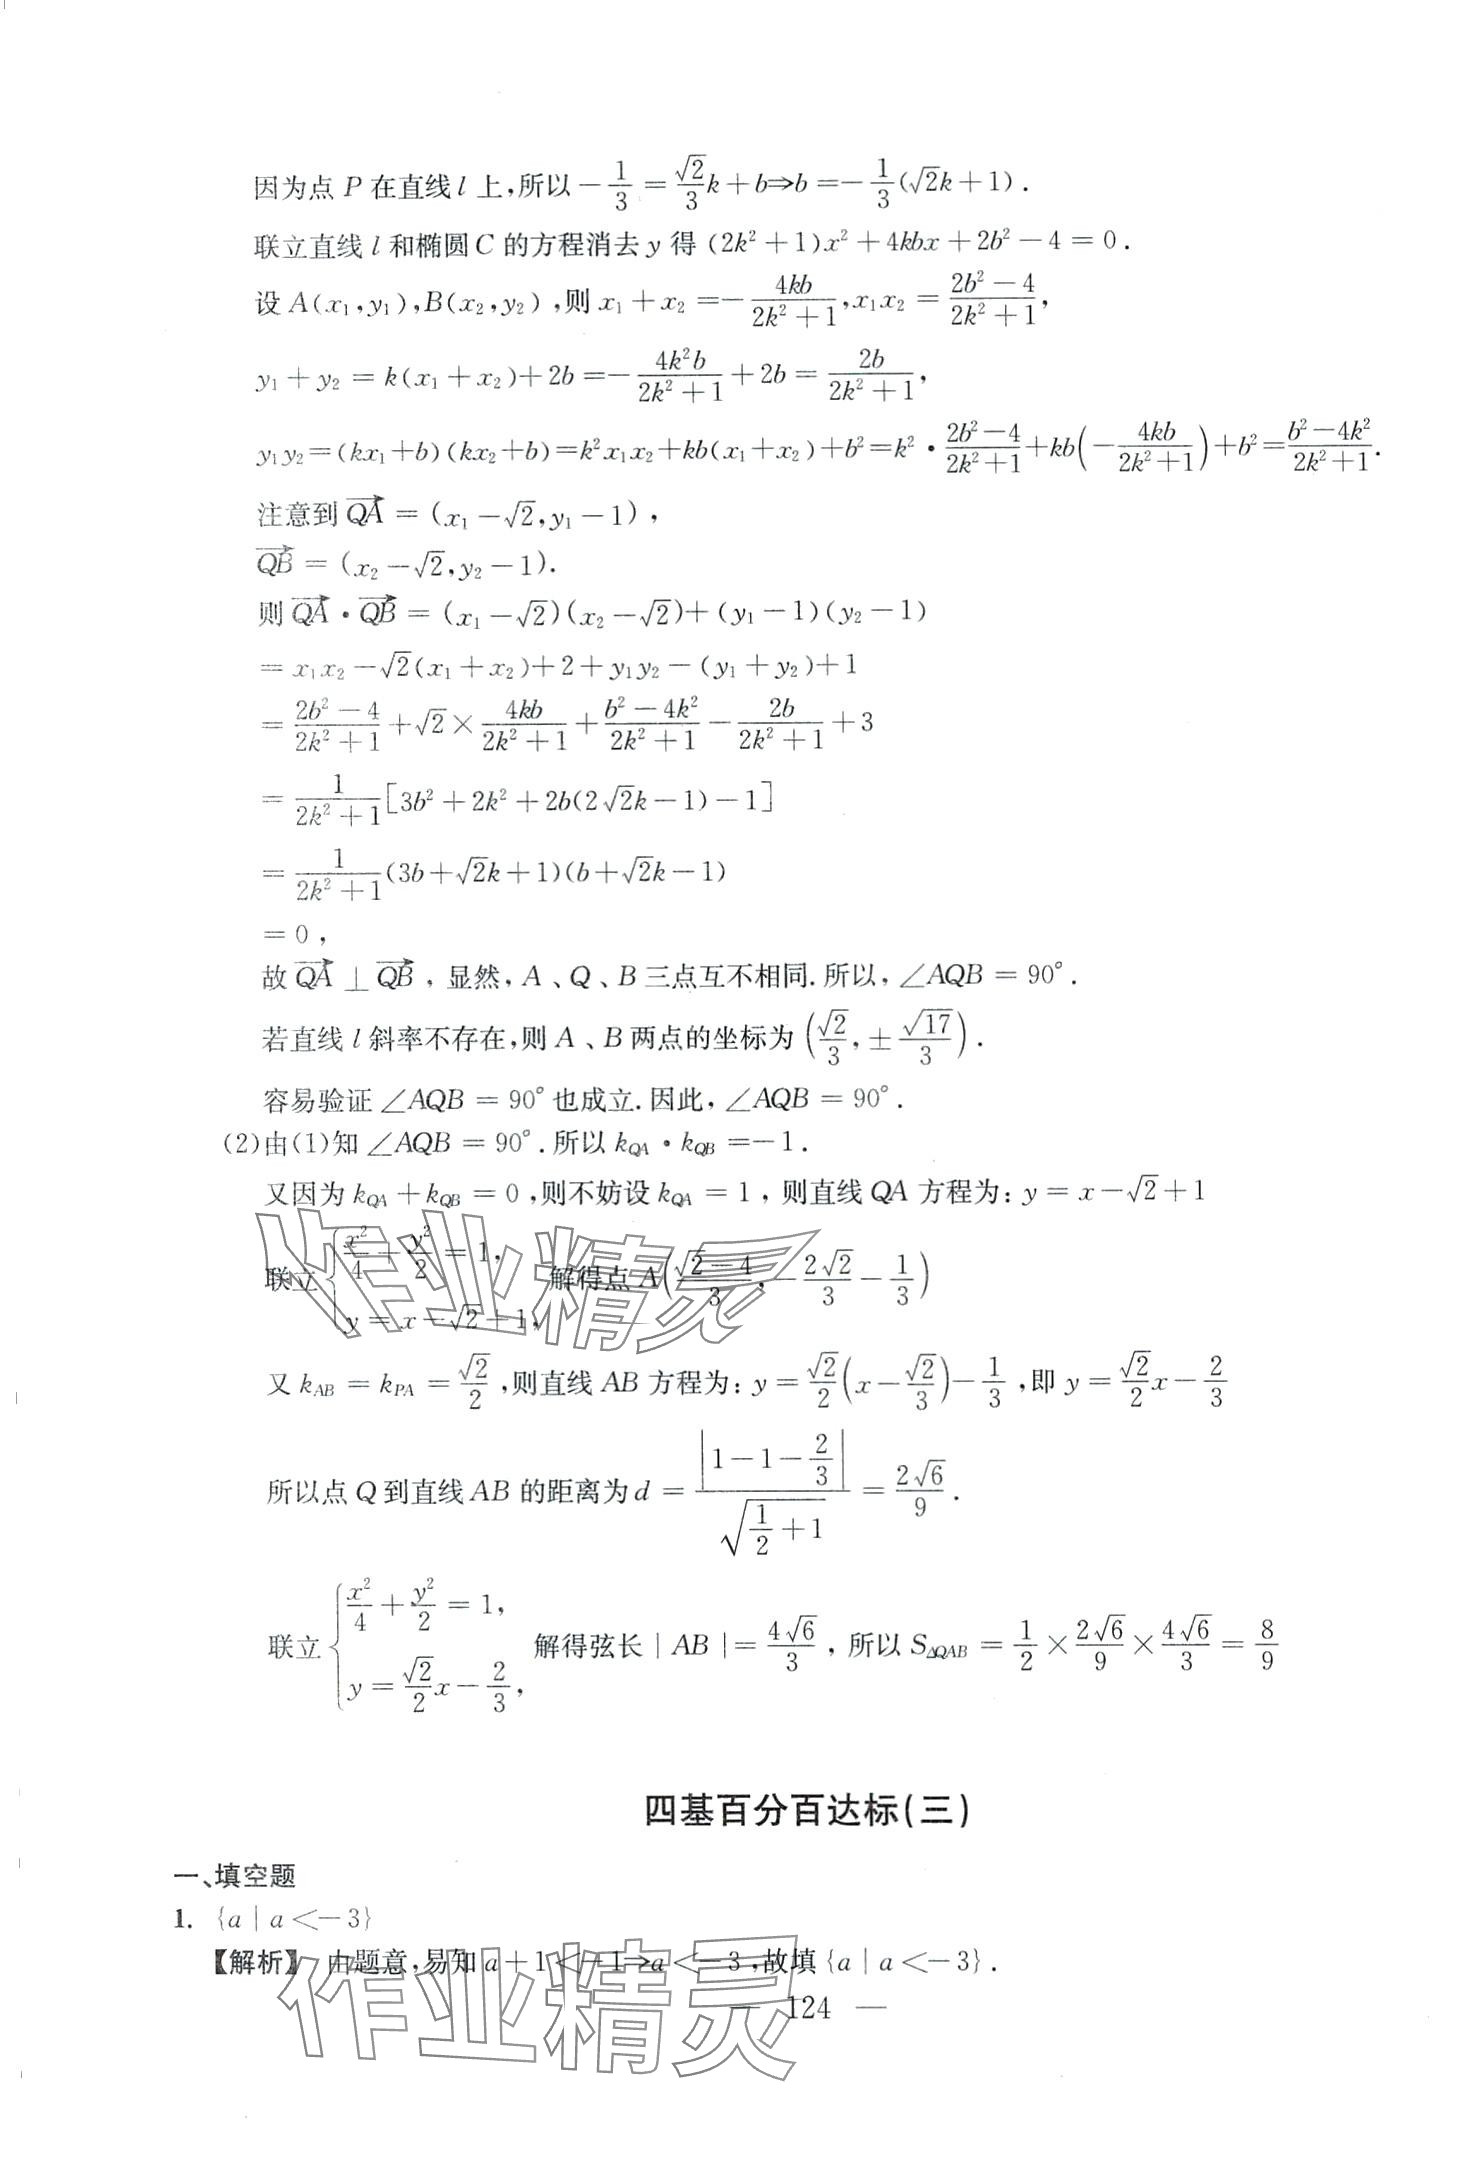 因为点 P 在直线 l 上,所以 $-\frac{1}{3}=\frac{\sqrt{2}}{3}k+b\Rightarrow b=-\frac{1}{3}(\sqrt{2}k+1)$.
联立直线 l 和椭圆 C 的方程消去 y 得 $(2k^2+1)x^2+4kbx+2b^2-4=0$.
设 $A(x_1,y_1),B(x_2,y_2)$,则 $x_1+x_2=-\frac{4kb}{2k^2+1},x_1x_2=\frac{2b^2-4}{2k^2+1}$,
$y_1+y_2=k(x_1+x_2)+2b=-\frac{4k^2b}{2k^2+1}+2b=\frac{2b}{2k^2+1}$,
$y_1y_2=(kx_1+b)(kx_2+b)=k^2x_1x_2+kb(x_1+x_2)+b^2=k^2\cdot\frac{2b^2-4}{2k^2+1}+kb\left(-\frac{4kb}{2k^2+1}\right)+b^2=\frac{b^2-4k^2}{2k^2+1}$.
注意到 $\overrightarrow{QA}=(x_1-\sqrt{2},y_1-1)$,
$\overrightarrow{QB}=(x_2-\sqrt{2},y_2-1)$.
则 $\overrightarrow{QA}\cdot\overrightarrow{QB}=(x_1-\sqrt{2})(x_2-\sqrt{2})+(y_1-1)(y_2-1)$
$=x_1x_2-\sqrt{2}(x_1+x_2)+2+y_1y_2-(y_1+y_2)+1$
$=\frac{2b^2-4}{2k^2+1}+\sqrt{2}\times\frac{4kb}{2k^2+1}+\frac{b^2-4k^2}{2k^2+1}-\frac{2b}{2k^2+1}+3$
$=\frac{1}{2k^2+1}[3b^2+2k^2+2b(2\sqrt{2}k-1)-1]$
$=\frac{1}{2k^2+1}(3b+\sqrt{2}k+1)(b+\sqrt{2}k-1)$
$=0$,
故 $\overrightarrow{QA}\perp\overrightarrow{QB}$,显然,A、Q、B 三点互不相同.所以,∠AQB=90°.
若直线 l 斜率不存在,则 A、B 两点的坐标为 $\left(\frac{\sqrt{2}}{3},\pm\frac{\sqrt{17}}{3}\right)$.
容易验证 ∠AQB=90°也成立.因此,∠AQB=90°.
(2)由(1)知 ∠AQB=90°.所以 $k_{QA}\cdot k_{QB}=-1$.
又因为 $k_{QA}+k_{QB}=0$,则不妨设 $k_{QA}=1$,则直线 QA 方程为:$y=x-\sqrt{2}+1$
联立 $\begin{cases}\frac{x^2}{4}+\frac{y^2}{2}=1,\\y=x-\sqrt{2}+1,\end{cases}$ 解得点 $A\left(\frac{\sqrt{2}-4}{3},-\frac{2\sqrt{2}}{3}-\frac{1}{3}\right)$
又 $k_{AB}=k_{PA}=\frac{\sqrt{2}}{2}$,则直线 AB 方程为:$y=\frac{\sqrt{2}}{2}\left(x-\frac{\sqrt{2}}{3}\right)-\frac{1}{3}$,即 $y=\frac{\sqrt{2}}{2}x-\frac{2}{3}$
所以点 Q 到直线 AB 的距离为 $d=\frac{\left|1-1-\frac{2}{3}\right|}{\sqrt{\frac{1}{2}+1}}=\frac{2\sqrt{6}}{9}$.
联立 $\begin{cases}\frac{x^2}{4}+\frac{y^2}{2}=1,\\y=\frac{\sqrt{2}}{2}x-\frac{2}{3},\end{cases}$ 解得弦长 $|AB|=\frac{4\sqrt{6}}{3}$,所以 $S_{\triangle QAB}=\frac{1}{2}\times\frac{2\sqrt{6}}{9}\times\frac{4\sqrt{6}}{3}=\frac{8}{9}$
四基百分百达标(三)
一、填空题
1. {a|a<-3}
【解析】 由题意,易知 a+1<-1⇒a<-3,故填{a|a<-3}.
— 124 —
作业精灵
作业精灵